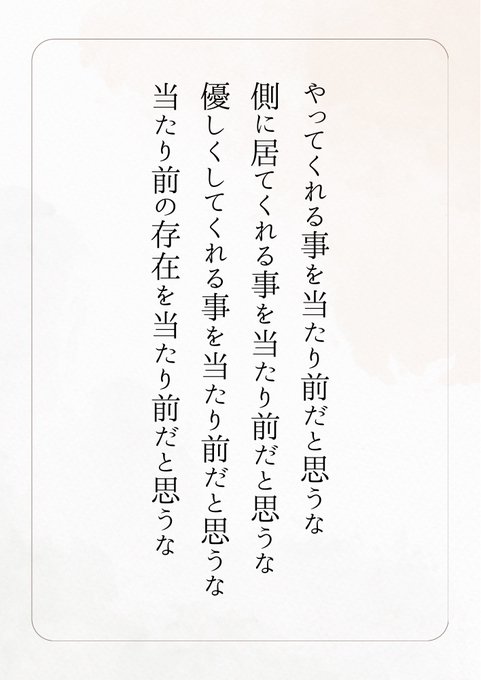 やってくれる事を当たり前だと思うな
側に居てくれる事を当たり前だと思うな
優しくしてくれる事を当たり前だと思うな
当たり前の存在を当たり前だと思うな